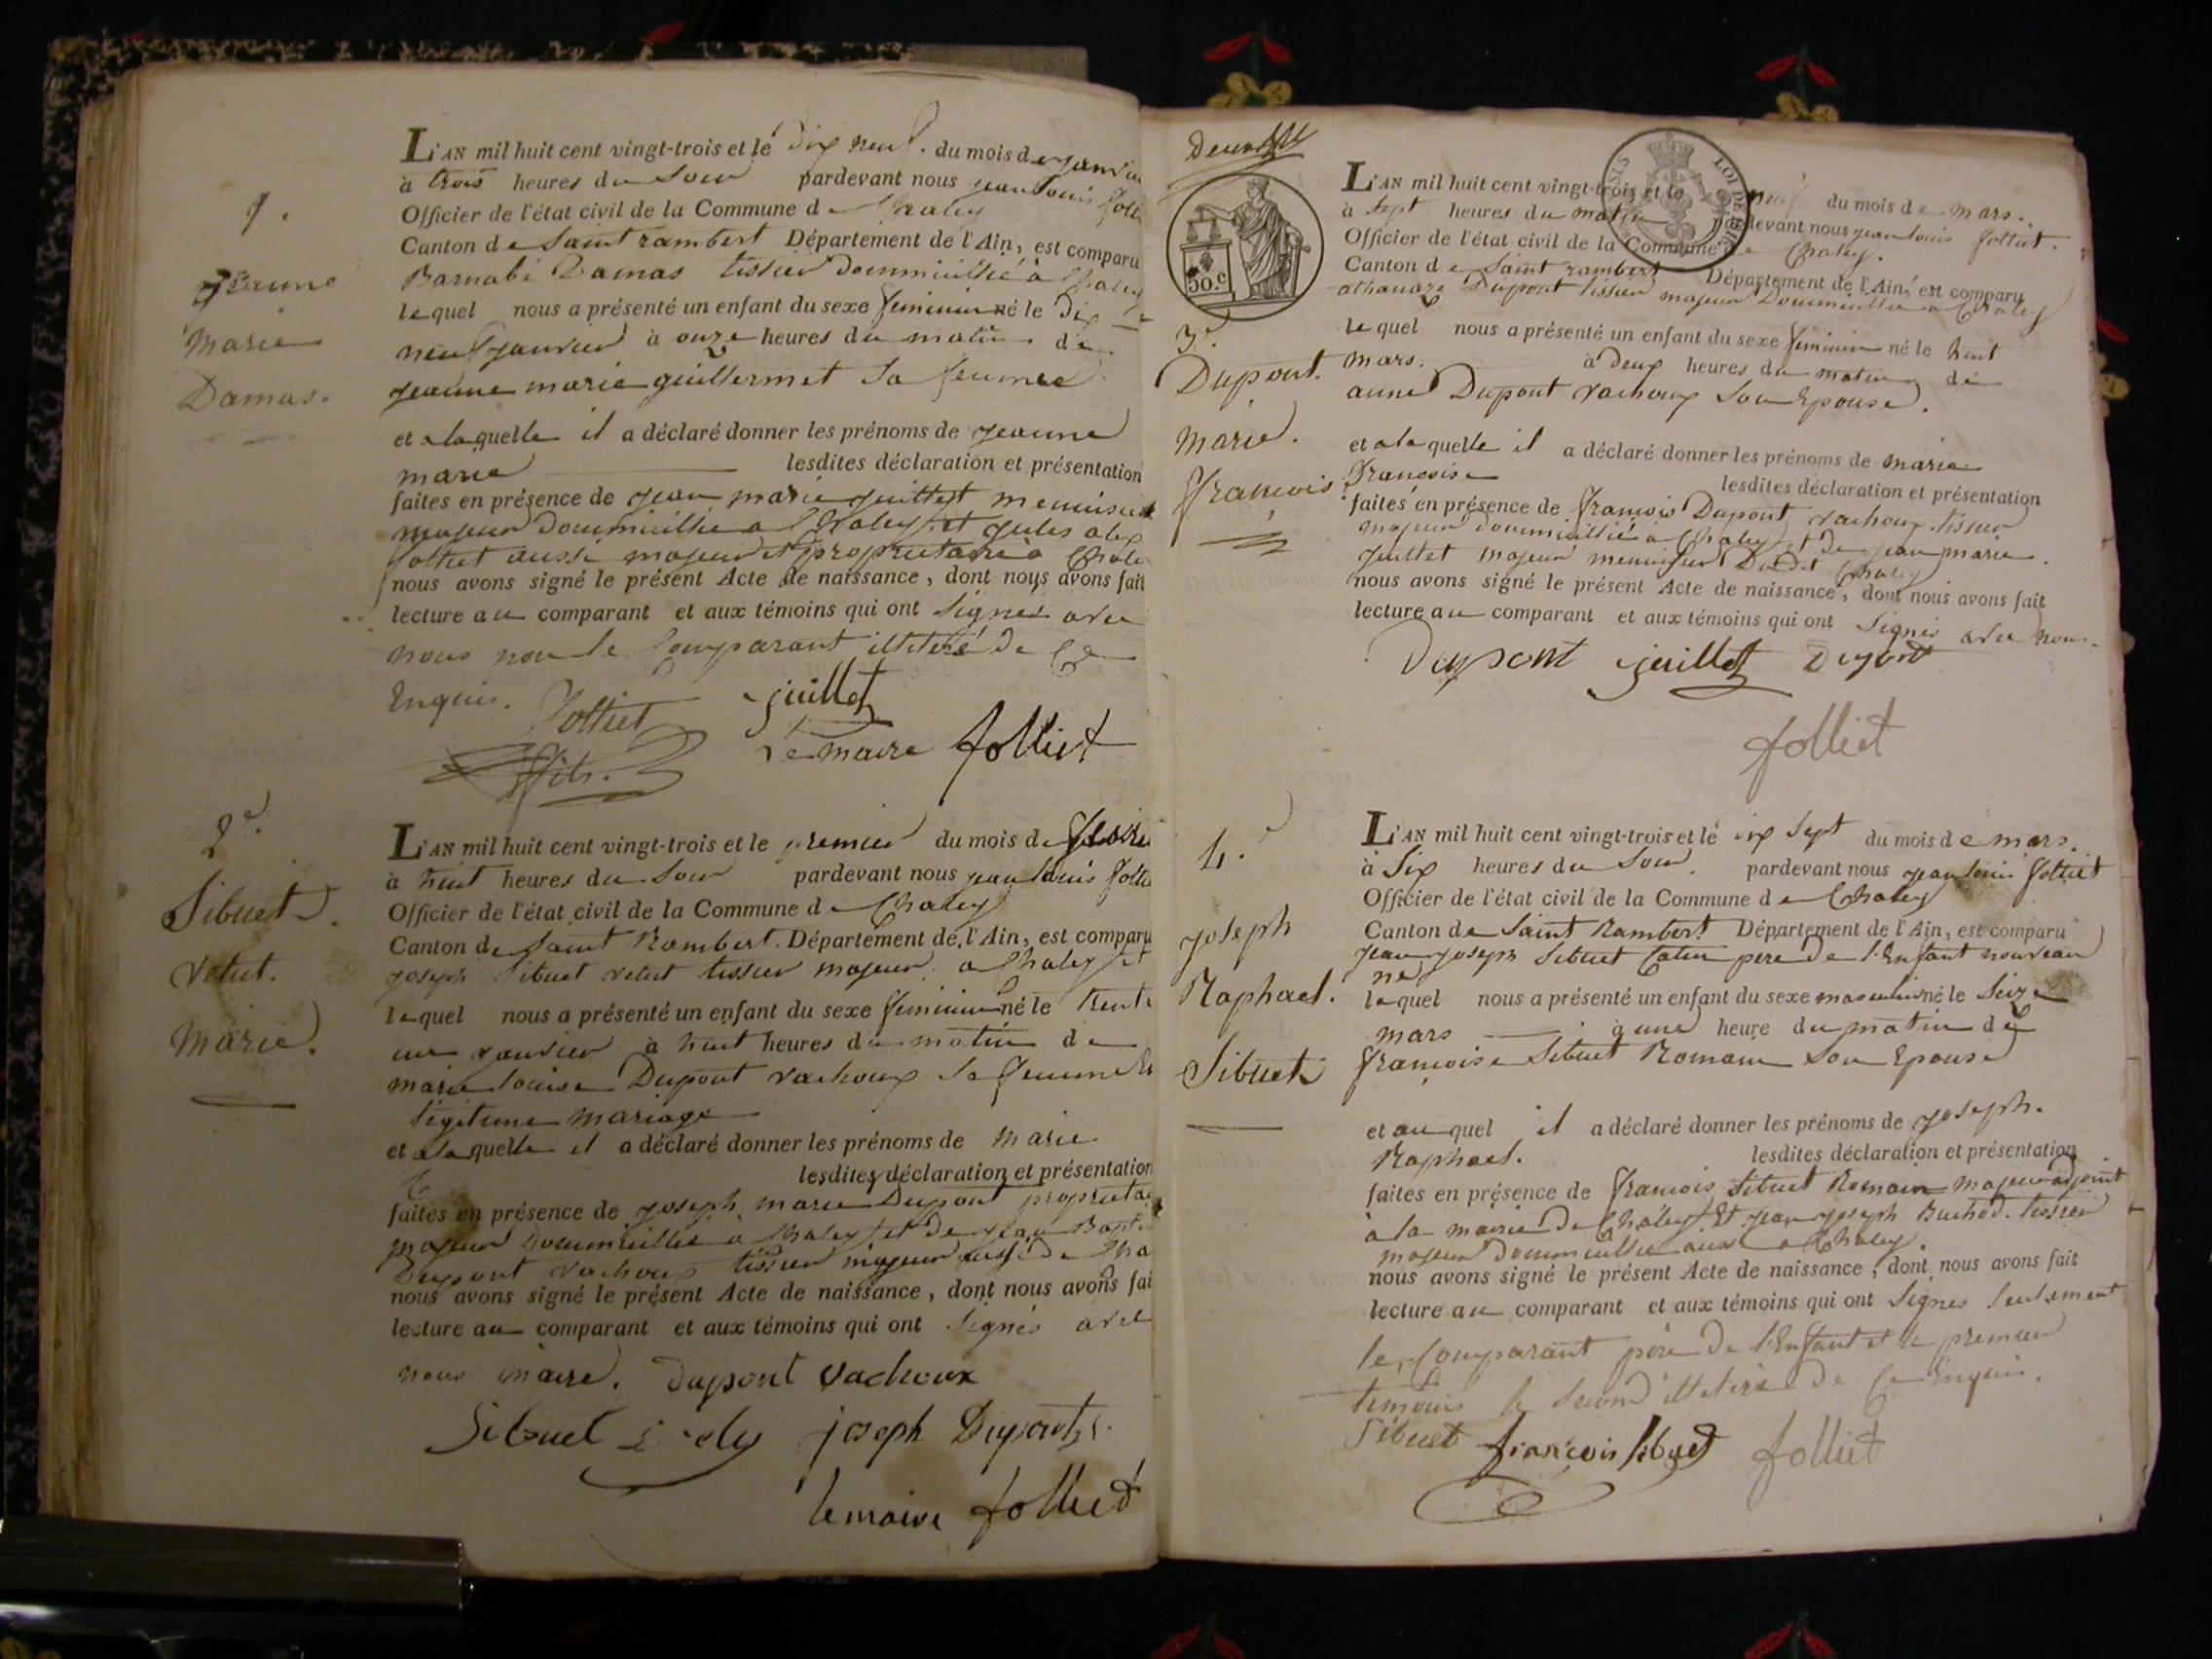 1.
Jeanne
Marie
Damas.
L'AN mil huit cent vingt-trois et le dix neuf. du mois de janvier
à trois heures du soir pardevant nous jean Louis folliet
Officier de l'état civil de la Commune de Chaley
Canton de Saint rambert Département de l'Ain, est comparu
Barnabé Damas tissier Doummicillié à Chaley
lequel nous a présenté un enfant du sexe feminin né le Dix
neuf janvier à onze heures du matin de
jeanne marie guillermet sa femme
et a laquelle il a déclaré donner les prénoms de jeanne
marie lesdites déclaration et présentation
faites en présence de jean marie juillet menuisier
majeur Doummicillie a Chaley et jules alex
folliet aussi majeur et proprietaire a Chaley
nous avons signé le présent Acte de naissance, dont nous avons fait
lecture au comparant et aux témoins qui ont signés avec
nous non le Comparant illeteré de Ce
Enquis. folliet juillet
fils. Le maire folliet
2e.
Sibuet
vetut.
Marie.
L'AN mil huit cent vingt-trois et le premier du mois de
à huit heures du soir pardevant nous jean louis folliet
Officier de l'état civil de la Commune de Chaley
Canton de Saint Rambert. Département de l'Ain, est comparu
joseph Sibuet vetut tissier majeur a Chaley et
lequel nous a présenté un enfant du sexe feminin né le trente
un janvier à huit heures du matin de
marie louise Dupont vachoux sa femme En
légitime mariage
et a laquelle il a déclaré donner les prénoms de marie
lesdites déclaration et présentation
faites en présence de joseph marie Dupont proprietai
majeur Doummicillie a Chaley et de jean Bapti
Dupont vachoux tissier majeur aussi de Cha
nous avons signé le présent Acte de naissance, dont nous avons fai
lecture au comparant et aux témoins qui ont signés avec
nous maire. dupont vachoux
Sibuet joseph Dupont
le maire folliet
LOI DE
50.c
3e.
Dupont.
Marie.
françois
L'AN mil huit cent vingt-trois et le neuf du mois de mars.
à sept heures du matin pardevant nous jean louis folliet.
Officier de l'état civil de la Commune de Chaley.
Canton de Saint rambert Département de l'Ain, est comparu
athanaze Dupont tissier majeur Doummicillie a Chaley
lequel nous a présenté un enfant du sexe feminin né le huit
mars. à Deux heures du matin de
anne Dupont vachoux son Epouse.
et a laquelle il a déclaré donner les prénoms de marie
françoise lesdites déclaration et présentation
faites en présence de françois Dupont vachoux tissier
majeur doummicillié a Chaley et de jean marie
juillet majeur menuisier Dudit Chaley
nous avons signé le présent Acte de naissance, dont nous avons fait
lecture au comparant et aux témoins qui ont signés avec nous.
Dupont juillet Dupont
folliet
4.e
joseph
Raphael.
Sibuet
L'AN mil huit cent vingt-trois et le dix sept du mois de mars.
à Six heures du soir. pardevant nous jean louis folliet
Officier de l'état civil de la Commune de Chaley
Canton de Saint Rambert Département de l'Ain, est comparu
jean joseph Sibuet Catin pere de l'Enfant nouveau
né
lequel nous a présenté un enfant du sexe masculin né le Seize
mars à une heure du matin de
françoise Sibuet Romain son Epouse
et au quel il a déclaré donner les prénoms de joseph.
Raphael. lesdites déclaration et présentation
faites en présence de françois Sibuet Romain majeur adjoint
à la mairie de Chaley Et jean joseph Buchod. tissier
majeur doummicillie aussi a Chaley.
nous avons signé le présent Acte de naissance, dont nous avons fait
lecture au comparant et aux témoins qui ont Signés Seulement
le Comparant père de l'Enfant et le premier
temoins le second illeteré de Ce Enquis.
Sibuet françois sibuet folliet